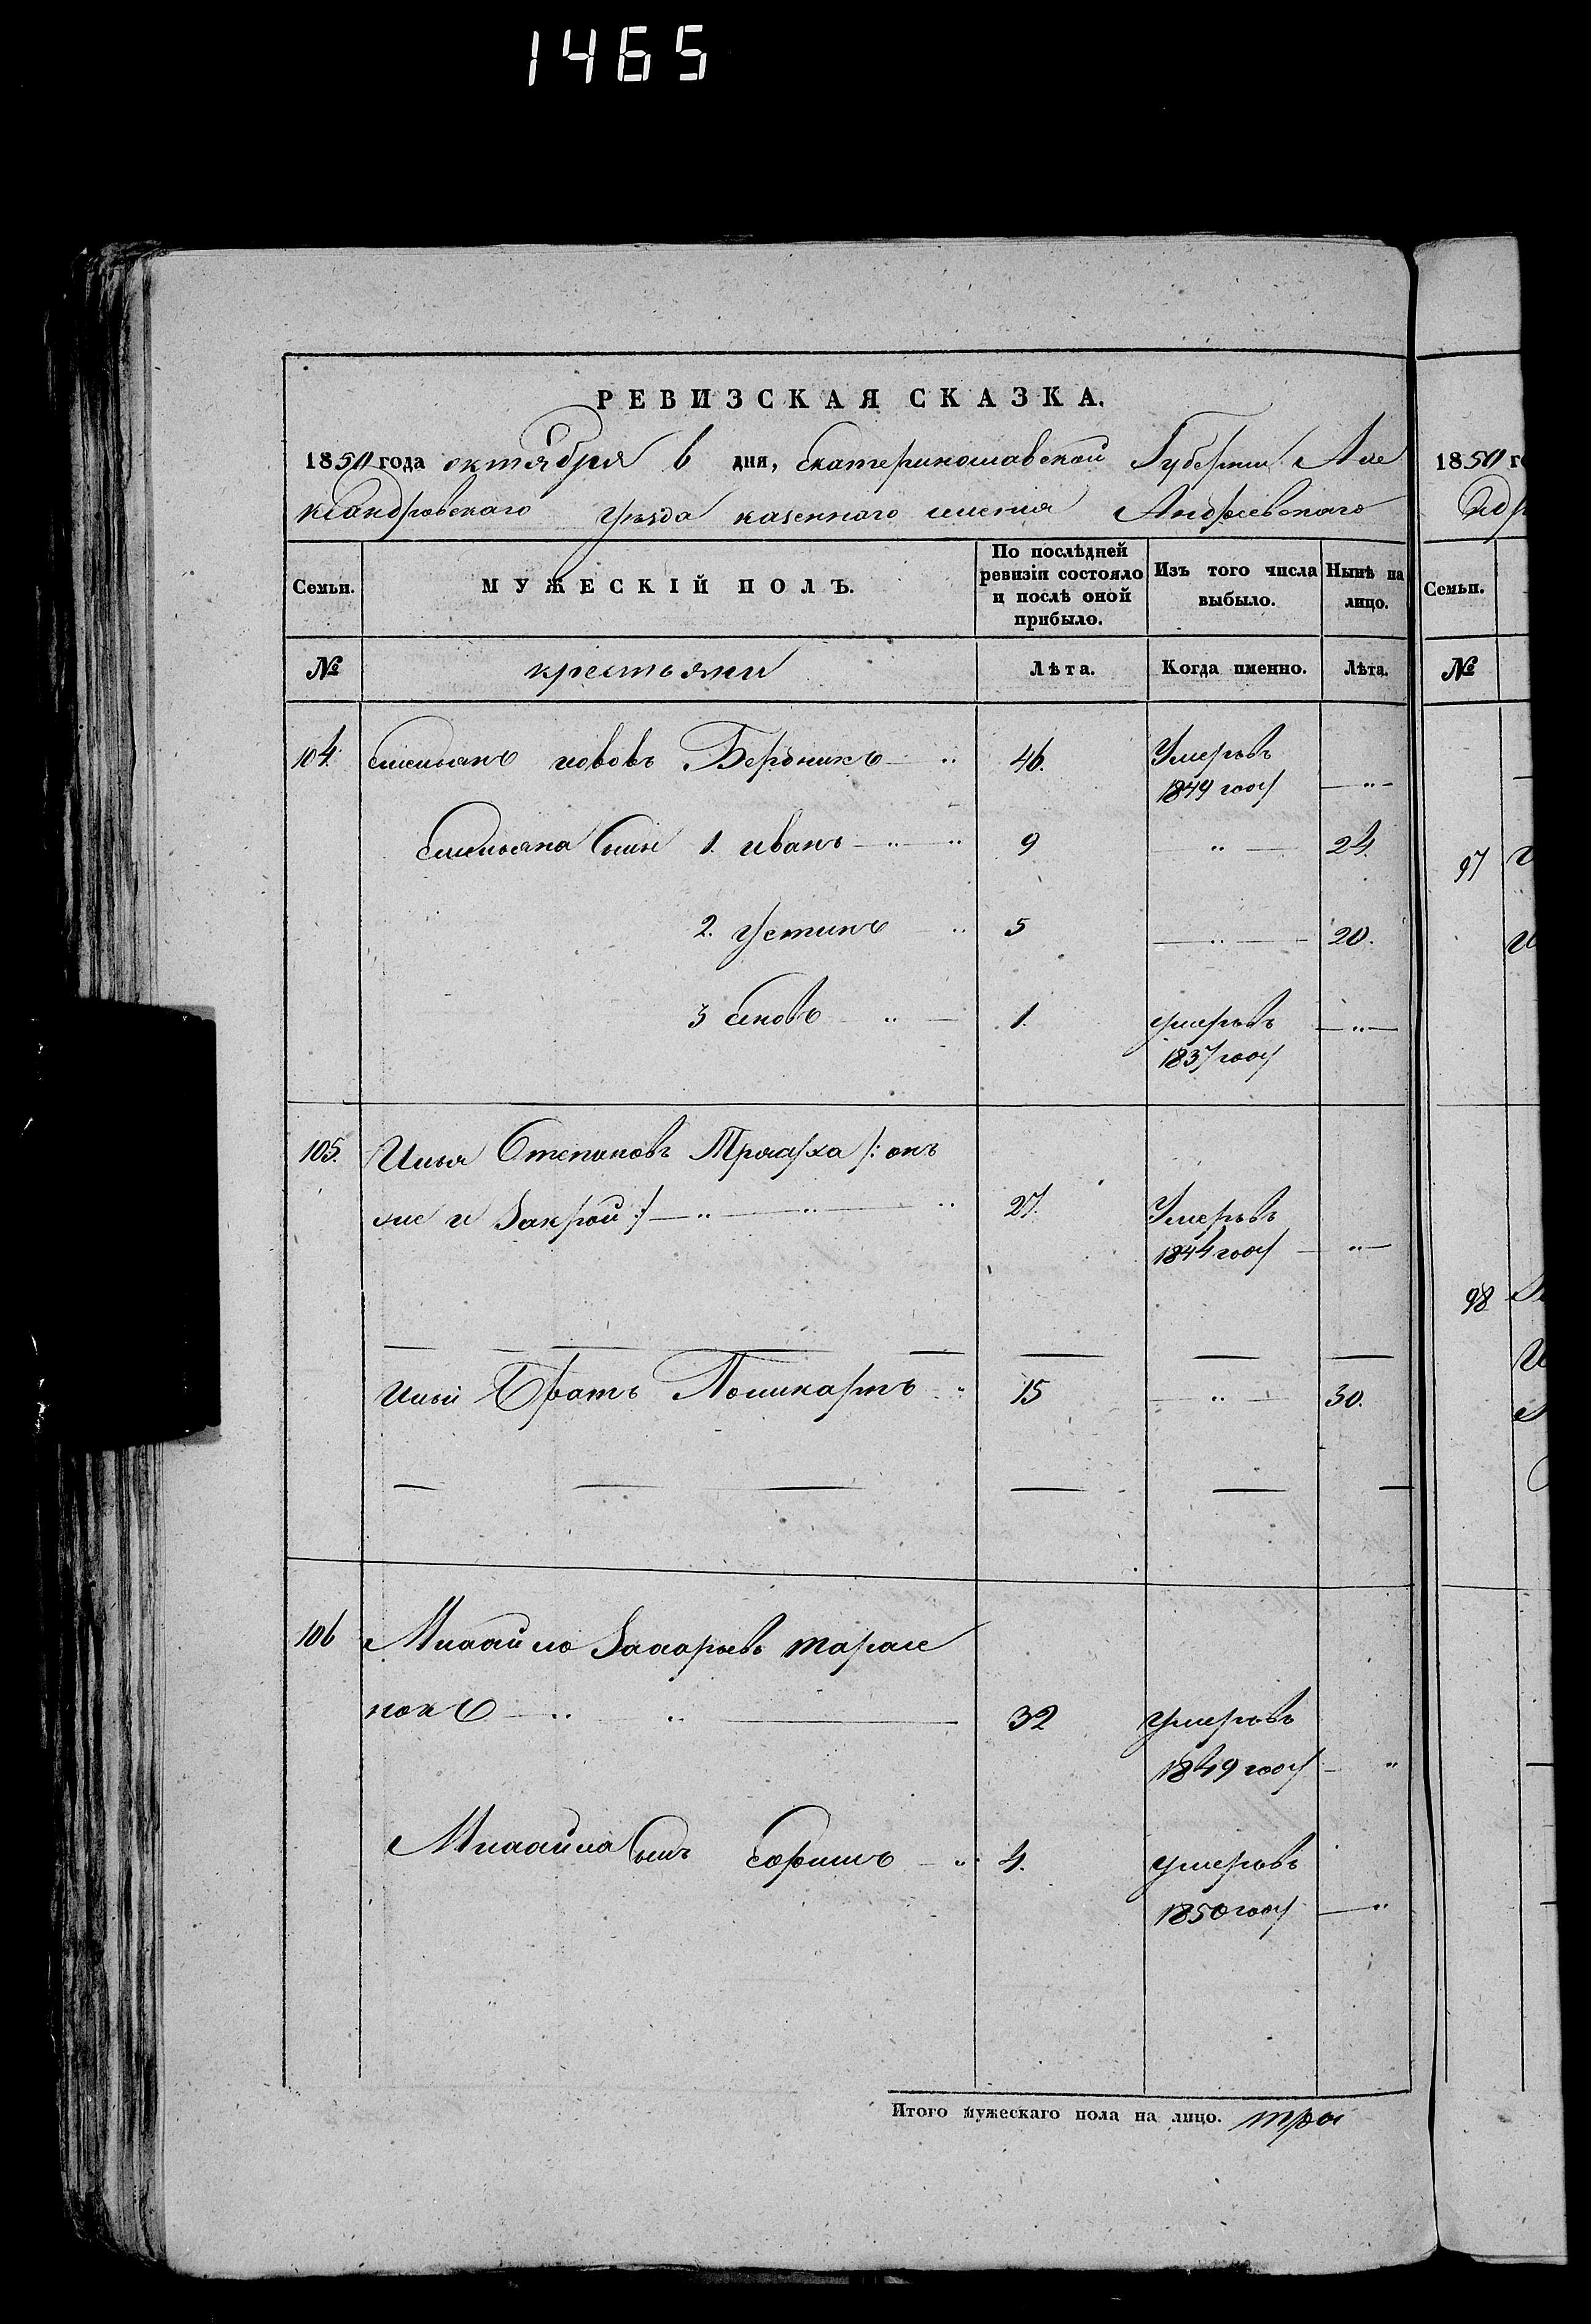 1465
РЕВИЗСКАЯ СКАЗКА.
1850 года октября 6 дня, Екатеринославской Губернии Але
ксандровского уѣзда казенного селения Андреевского
Семьи. МУЖЕСКІЙ ПОЛЪ. По послѣдней ревизіи состояло и послѣ оной прибыло. Изъ того числа выбыло. Нынѣ на лицо.
№ крестьяни Лѣта. Когда именно. Лѣта.
104. Емельянъ иововъ Бердникъ 46. Умеръвъ
1849 году
Емельяна Сини 1. иванъ 9 24.
2. устинъ 5 20.
3 1. умеръвъ
1837 году
105. Илья Степановъ : онъ
же и Закрой :/ 27. Умеръвъ
1844 году
Ильи Братъ Поликарпъ 15 30.
106 Михайло Захаръевъ тарасе
нокъ 32 умеръвъ
1849 году
Михайла Сынъ 4. умеръвъ
1850 году
Итого мужескаго пола на лицо. три
1850 г
Семьи.
№
97
98